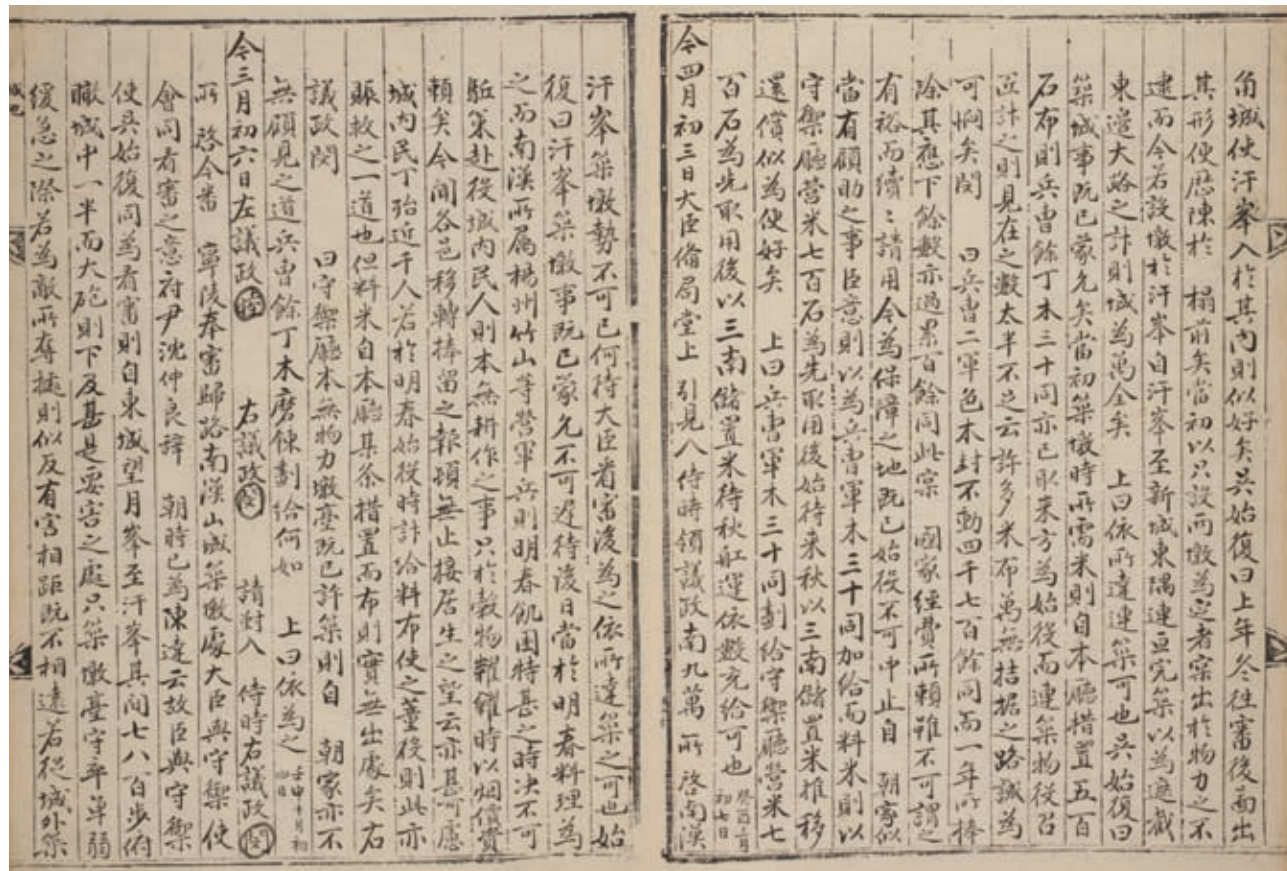 甬城使汗峯入於其內則似好矣吳始復曰上年冬徃審後畵出
其形便歷陳於 榻前矣當初以只設兩墩爲定者寀出於物力之不
逮而今若設墩於汗峯自汗峯至新城東隅連亘完築以爲遮截
東邊大路之計則城爲萬全矣 上曰依所達連築可也吳始復曰
築城事旣已蒙允矣當初築墩時所需米則自本廳措置五百
石布則兵曺餘丁木三十同亦已取來方爲始役而連築物役
並計之則見在之數太半不足云許多米布萬無拮据之路誠爲
可悶矣閔 曰兵曺二軍色木封不動四千七百餘同而一年所捧
除其應下餘數亦過累百餘同此寀 國家經費所賴雖不可謂之
有裕而續〻請用今爲保障之地旣已始役不可中止自 朝家似
當有顧助之事臣意則以爲兵曺軍木三十同加給而料米則以
守禦廳營米七百石爲先取用後始待來秋以三南儲置米推移
還償似爲便好矣 上曰兵曺軍木三十同劃給守禦廳營米七
百石爲先取用後以三南儲置米待秋舡運依數充給可也 癸酉二月初七日
今四月初三日大臣備局堂上 引見入侍時領議政南九萬所啓南漢
汗峯築墩勢不可已何待大臣看審後爲之依所達築之可也始
復曰汗峯築墩事旣已蒙允不可遲待後日當於明春料理爲
之而南漢所屬楊州竹山等營軍兵則明春飢困特甚之時決不可
駈策赴役城內民人則本無耕作之事只於穀物糶糴時以烟價資
賴矣今聞各邑移轉捧留之報頓無止接居生之望云亦甚可慮
城內民丁殆近千人若於明春始役時計給料布使之董役則此亦
賑救之一道也但料米自本廳某条措置而布則實無出處矣右
議政閔 曰守禦廳本無物力墩臺旣已許築則自 朝家亦不
無顧見之道兵曺餘丁木磨鍊劃給何如 上曰依爲之 壬申十月初四日
今三月初六日左議政睦 右議政閔 請對入 侍時右議政閔
所 啓今番 寧陵奉審歸路南漢山城築墩處大臣與守禦使
會同看審之意府尹沈仲良辭 朝時已爲陳達云故臣與守禦
使吳始復同爲看審則自東城望月峯至汗峯其間七八百步俯
瞰城中一半而大砲則下及甚是要害之處只築墩臺守卒單弱
緩急之際若爲敵所奪據則似反有害相距旣不相遠若從城外築